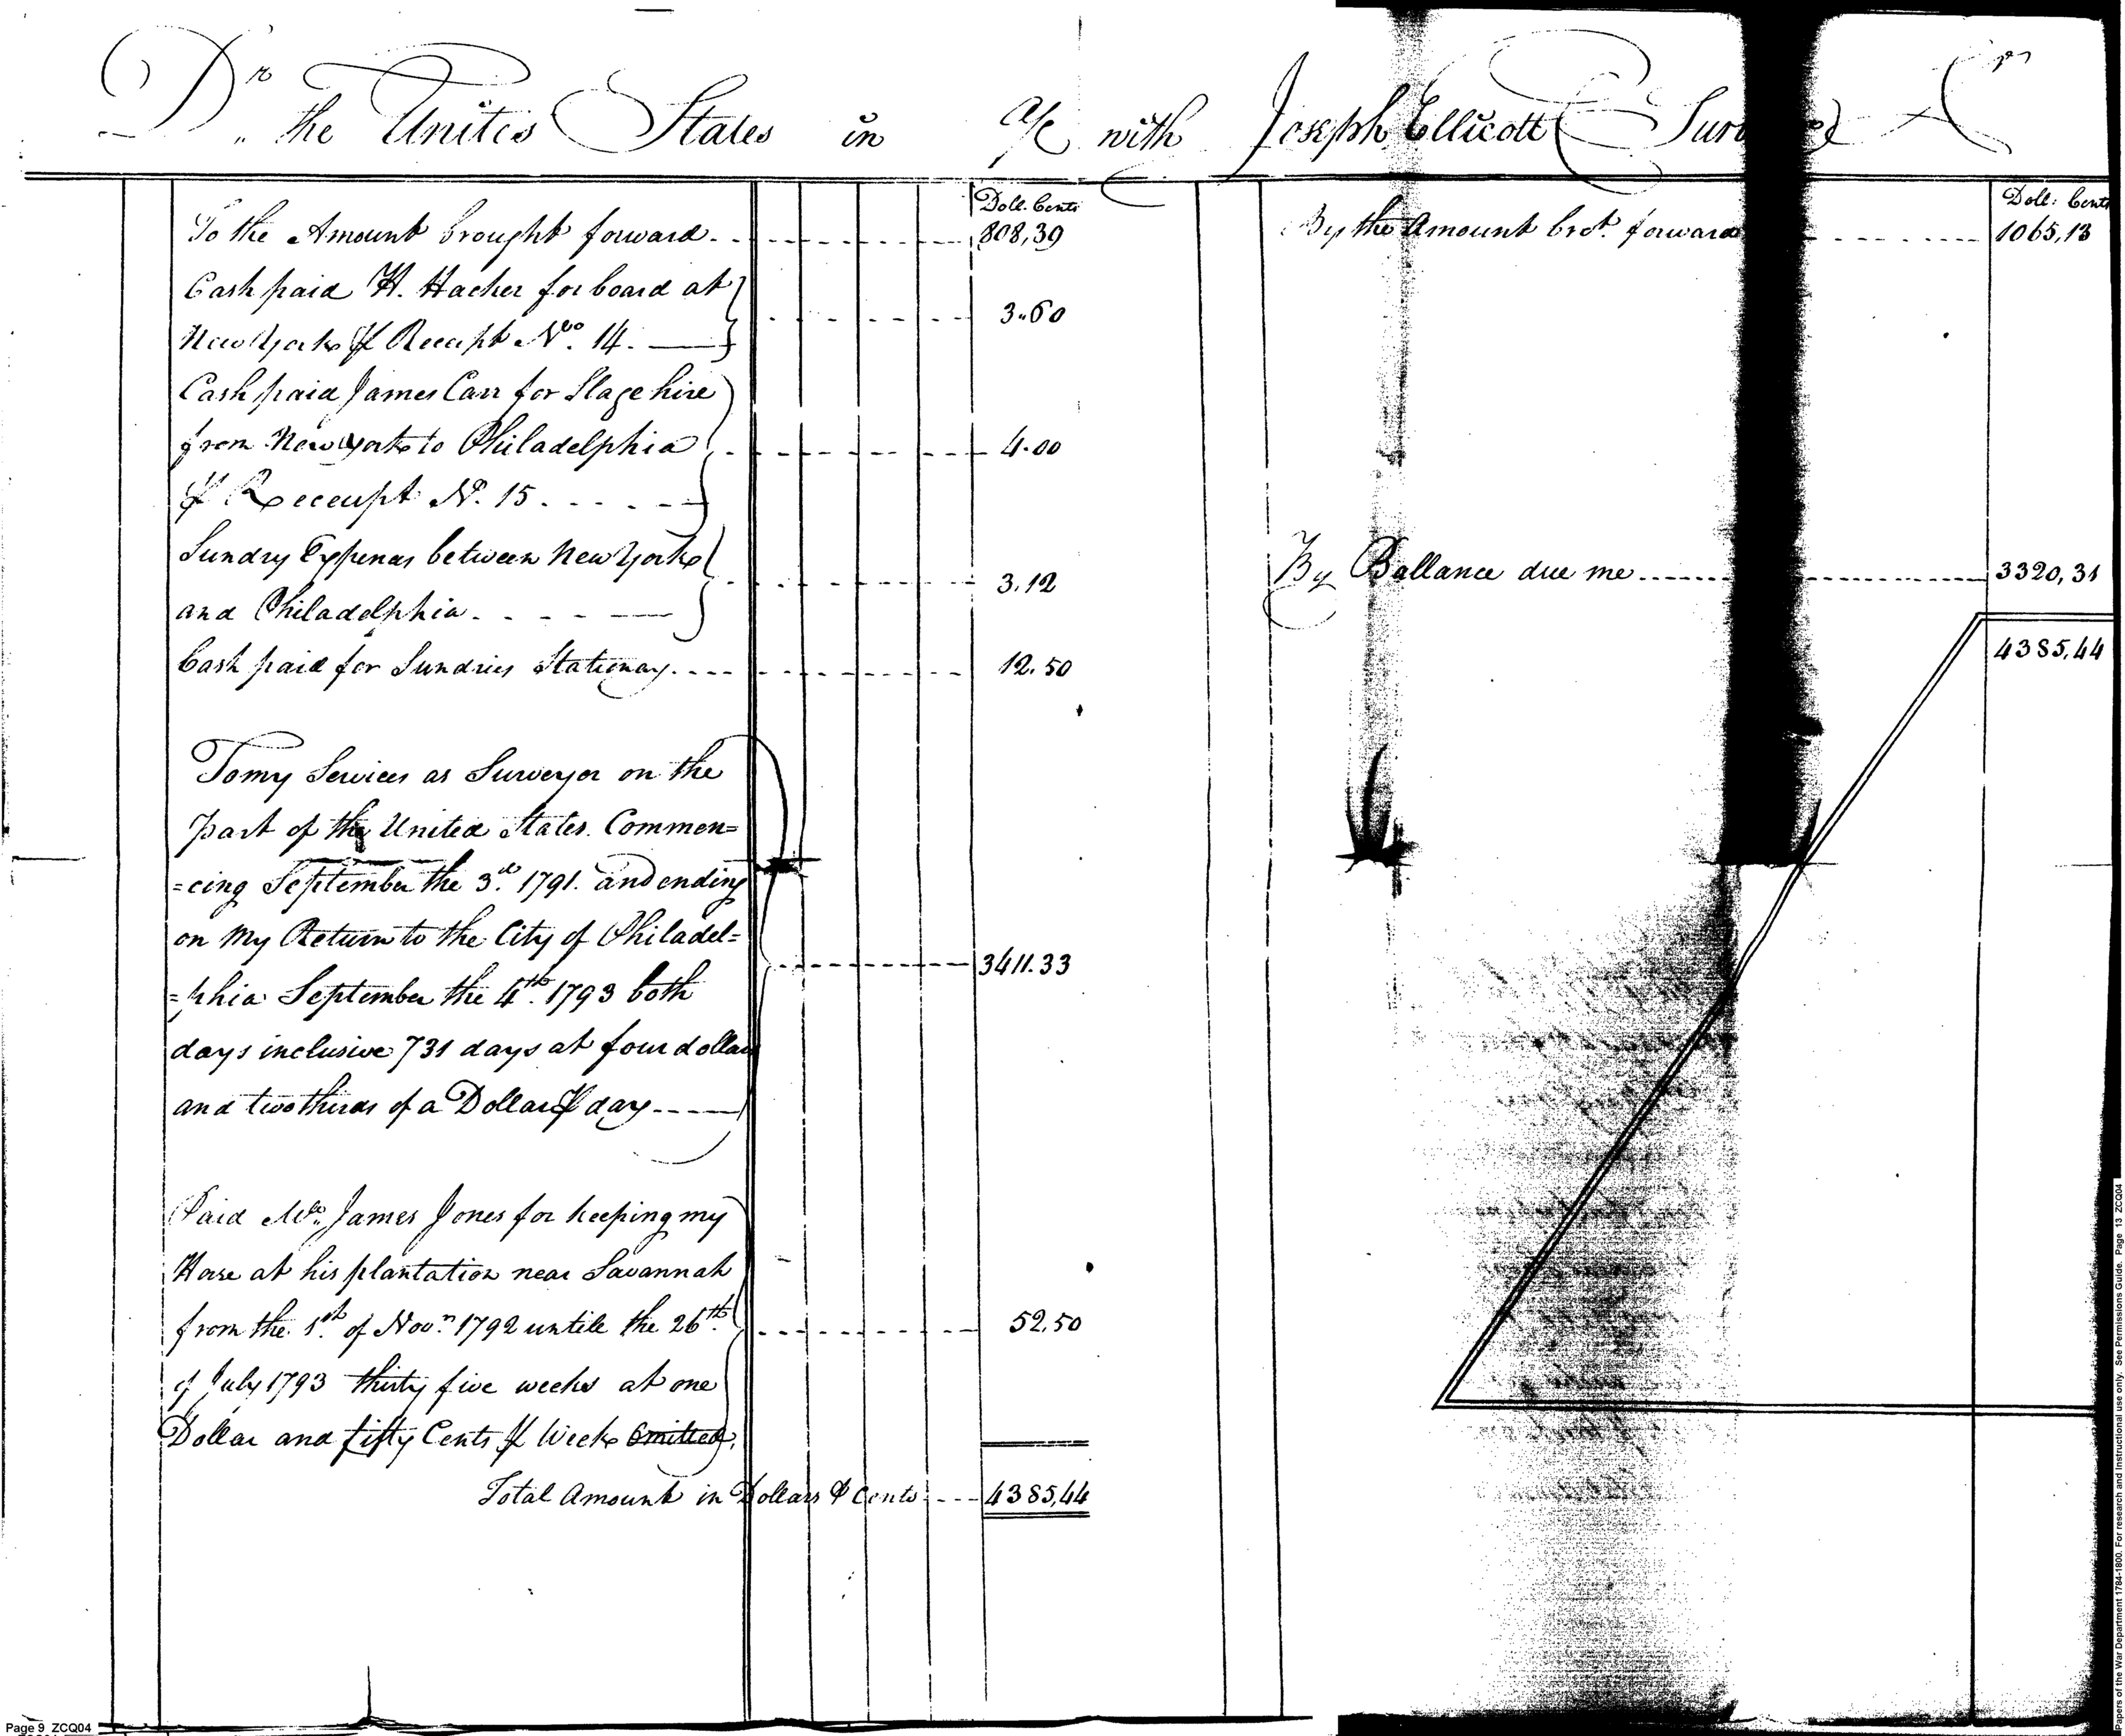 Dr. the United States in a/c with Joseph Ellicott Cr
Doll. Cents
To the Amount brought forward. 808,39
Cash paid H. Hacker for board at
New York ⅌ Receipt No. 14. 3.60
Cash paid James Carr for Stage hire
from New york to Philadelphia 4.00
⅌ Receeipt No. 15.
Sundry Expenses between New York
and Philadelphia. 3.12
Cash paid for Sundries Stationay. 12.50
To my Services as Surveyor on the
part of the United States. Commen=
=cing September the 3d. 1791. and ending
on My Return to the City of Philadel=
=phia September the 4th. 1793 both 3411.33
days inclusive 731 days at four dollars
and two thirds of a Dollar ⅌ day
Paid Mr. James Jones for keeping my
Horse at his plantation near Savannah
from the 1st. of Novr. 1792 untile the 26th. 52.50
of July 1793 thirty five weeks at one
Dollar and fifty Cents ⅌ Week Omitted.
Total Amount in Dollars & Cents 4385,44
Doll: Cents
By the Amount brot. forward 1065,13
By Ballance due me 3320,31
4385,44
Page 9 ZCQ04
Papers of the War Department 1784-1800. For research and instructional use only. See Permissions Guide. Page 13 ZCQ04